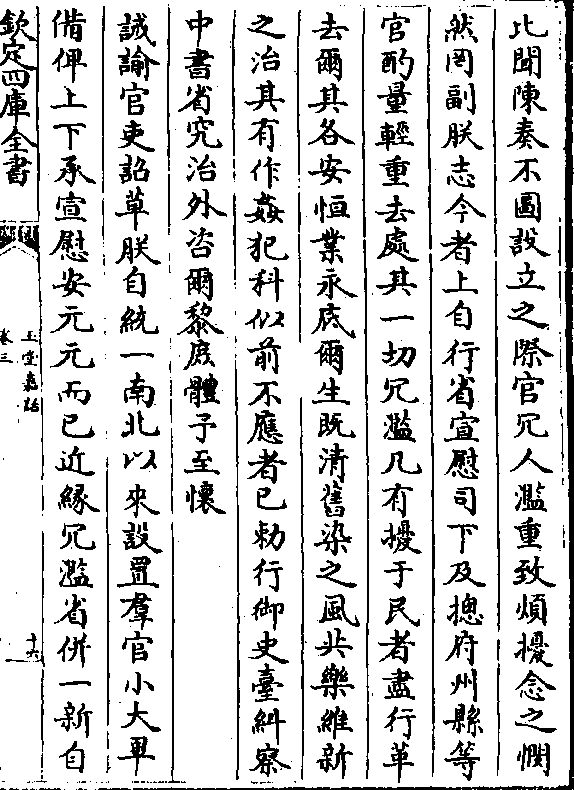 比聞陳奏不圖設立之際官冗人濫重致煩擾念之憫
然罔副朕志今者上自行省宣慰司下及摠府州縣等
官酌量輕重去處其一切冗濫凡有擾于民者盡行革
去爾其各安恒業永底爾生既清舊染之風共樂維新
之治其有作姦犯科似前不應者已勅行御史臺糾察
中書省究治外咨爾黎庶體予至懷
誡諭官吏詔草朕自統一南北以來設置羣官小大畢
備俾上下承宣慰安元元而已近緣冗濫省併一新自
欽定四庫全書
玉堂嘉話
卷三
十六